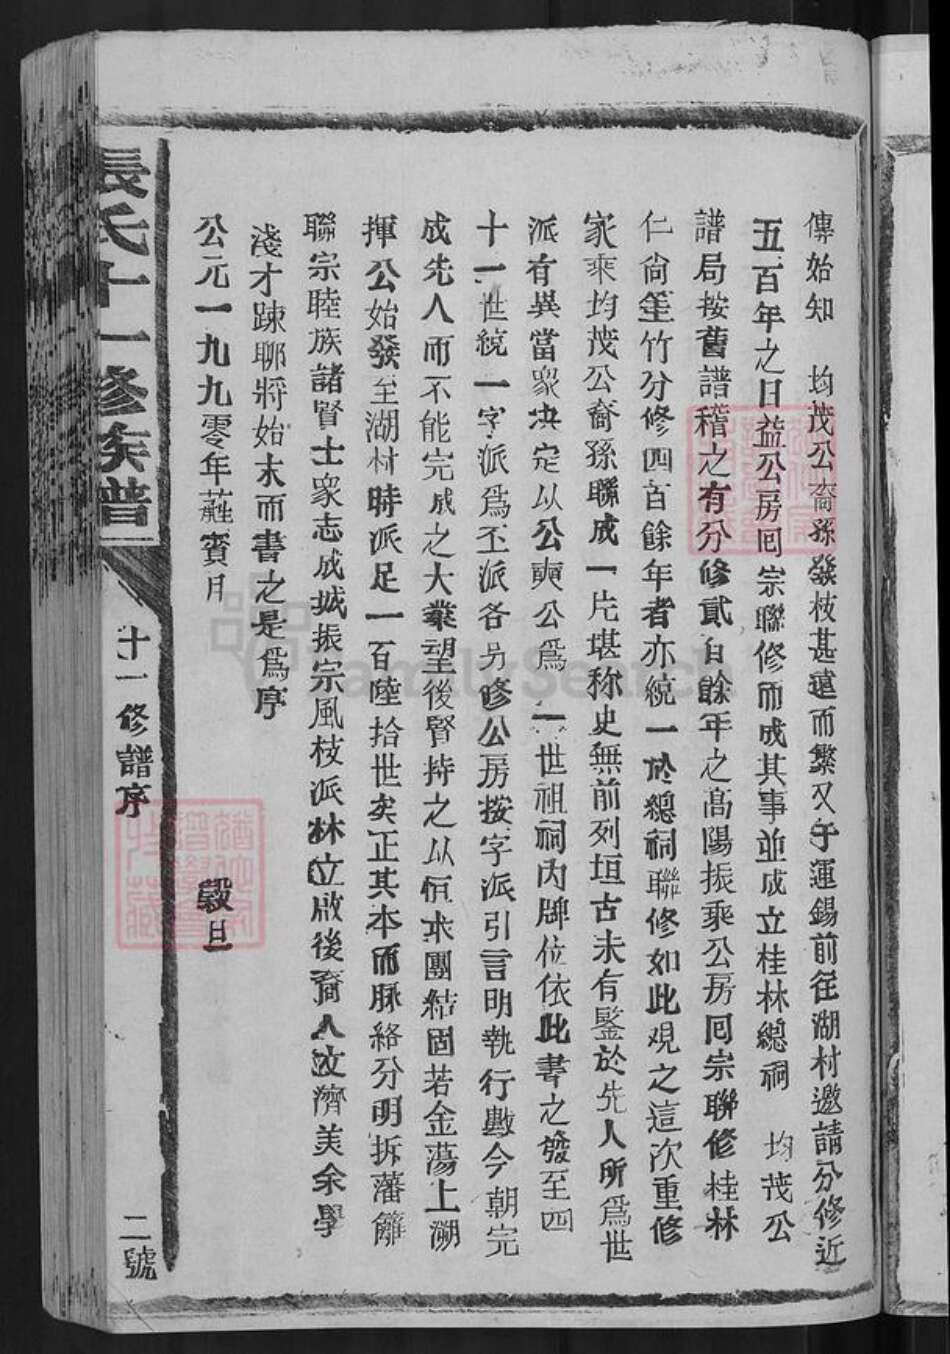 傳始知　均茂公裔孫發枝甚遠而繁又于運錫前往湖村邀請分修近
五百年之日益公房囘宗聯修而成其事並成立桂林總祠　均茂公
譜局按舊譜稽之有分修貳百餘年之高陽振乘公房囘宗聯修桂林
仁尚筀竹分修四百餘年者亦統一於總祠聯修如此观之這次重修
家乘均茂公裔孫聯成一片堪称史無前列垣古未有鑒於先人所爲世
派有異當衆决定以公賣公爲一世祖祠内牌位依此書之發至四
十一世統一字派爲丕派各另修公房按字派引言明執行數今朝完
成先人而不能完成之大業望後賢持之以恒求團結固若金蕩上溯
揮公始發至湖村時派足一百陸拾世矣正其本而脉絡分明拆藩籬
聯宗睦族諸賢士衆志成城振宗風枝派林立啟後裔人汶濟美余學
淺才踈聊將始末而書之是爲序
公元一九九零年蕤賓月　穀旦
張氏十一修族譜
十一修譜序
二號
FamilySearch